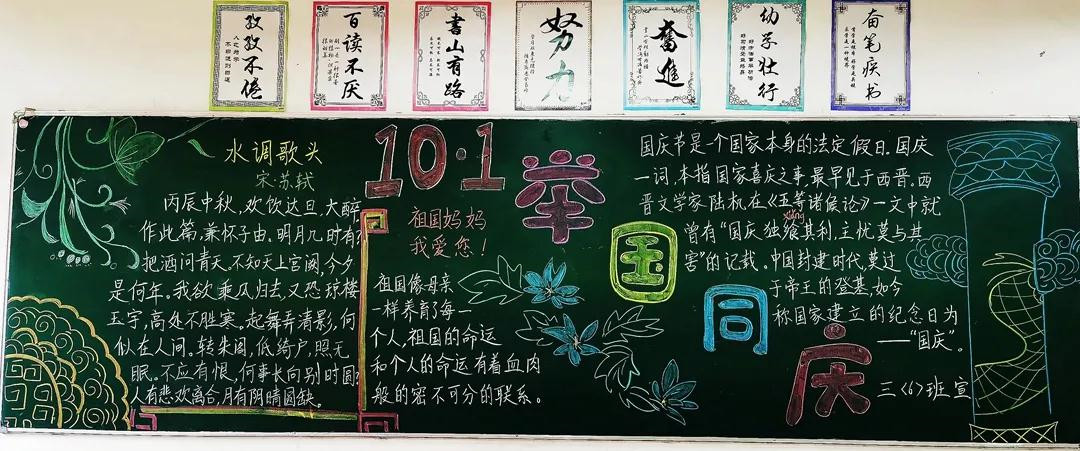 孜孜不倦
百读不厌
书山有路
努力
奋进
幼学壮行
奋笔疾书
水调歌头
宋·苏轼
丙辰中秋,欢饮达旦,大醉
作此篇,兼怀子由。明月几时有?
把酒问青天,不知天上宫阙,今夕
是何年。我欲乘风归去,又恐琼楼
玉宇,高处不胜寒。起舞弄清影,何
似在人间。转朱阁,低绮户,照无
眠。不应有恨,何事长向别时圆?
人有悲欢离合,月有阴晴圆缺。
10·1
祖国妈妈
我爱您!
祖国像母亲
一样养育了每一
个人,祖国的命运
和个人的命运有着血肉
般的密不可分的联系。
举国同庆
国庆节是一个国家本身的法定假日。国庆
一词,本指国家喜庆之事最早见于西晋。西
晋文学家陆机在《五等诸侯论》一文中就
曾有“国庆独飨其利,主忧莫与其
害”的记载。中国封建时代,莫过
于帝王的登基,如今
称国家建立的纪念日为
——“国庆”。
三〈6〉班宣